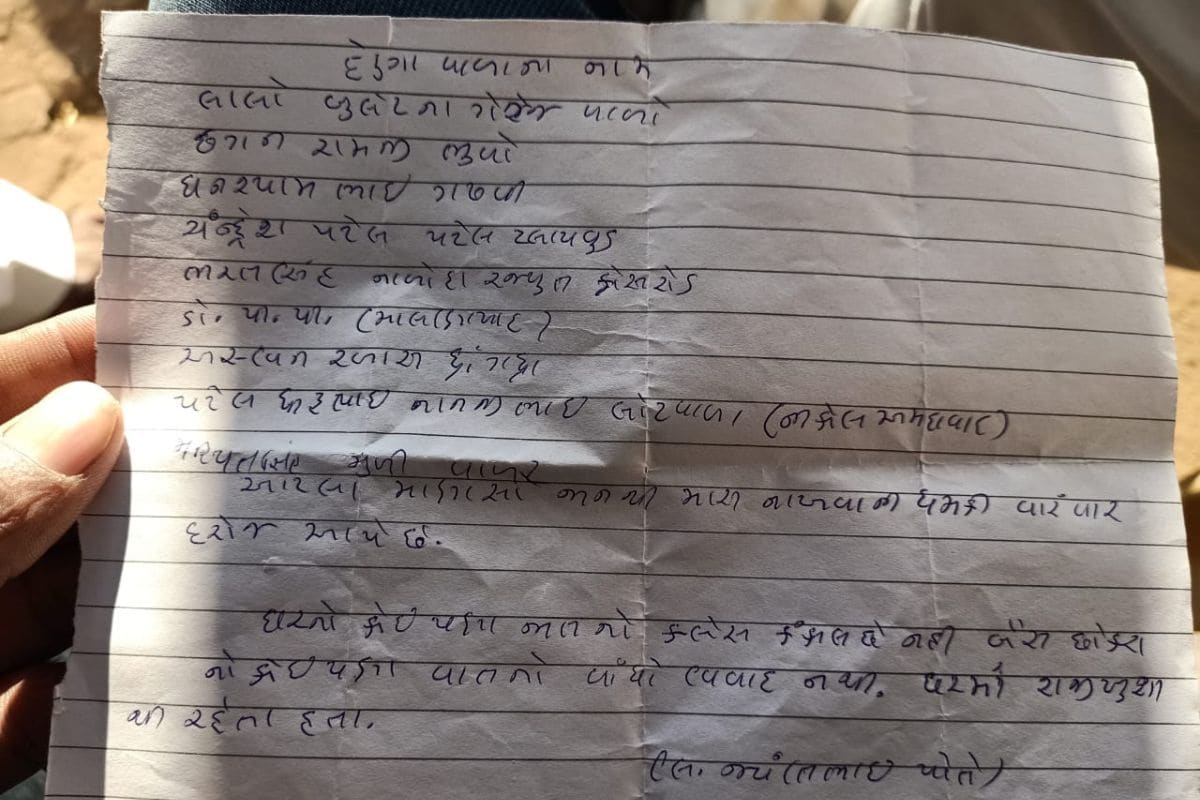 દેણગા વાળાના નામ
લાલો બુલેટના ગેરેજ વાળો
છગન રામજી ભુવો
ઘનશ્યામ ભાઇ ગઢવી
ચંન્દ્રેશ પટેલ પટેલ
ભરતસિંહ નાળોદા રજપુત ક્રોસરોડ
ડો. પી. પી. (માલણીયાદ)
રબારી ધ્રાંગધ્રા
પટેલ નાનજીભાઇ લોટવાળા (અમદાવાદ)
મુળી
આટલા માણસો જાનથી મારી નાખવાની ધમકી વારંવાર
દરોજ આપે છે.
ઘરનો કોઈ પણ જાતનો કલેસ કંકાસ છે નહી બૈરા છોકરા
નો કોઈ પણ વાતનો વાંધો વિવાદ નથી. ઘરમાં રાજીખુશી
થી રહેતા હતા.
(લિ. જયંતિભાઇ પોતે)